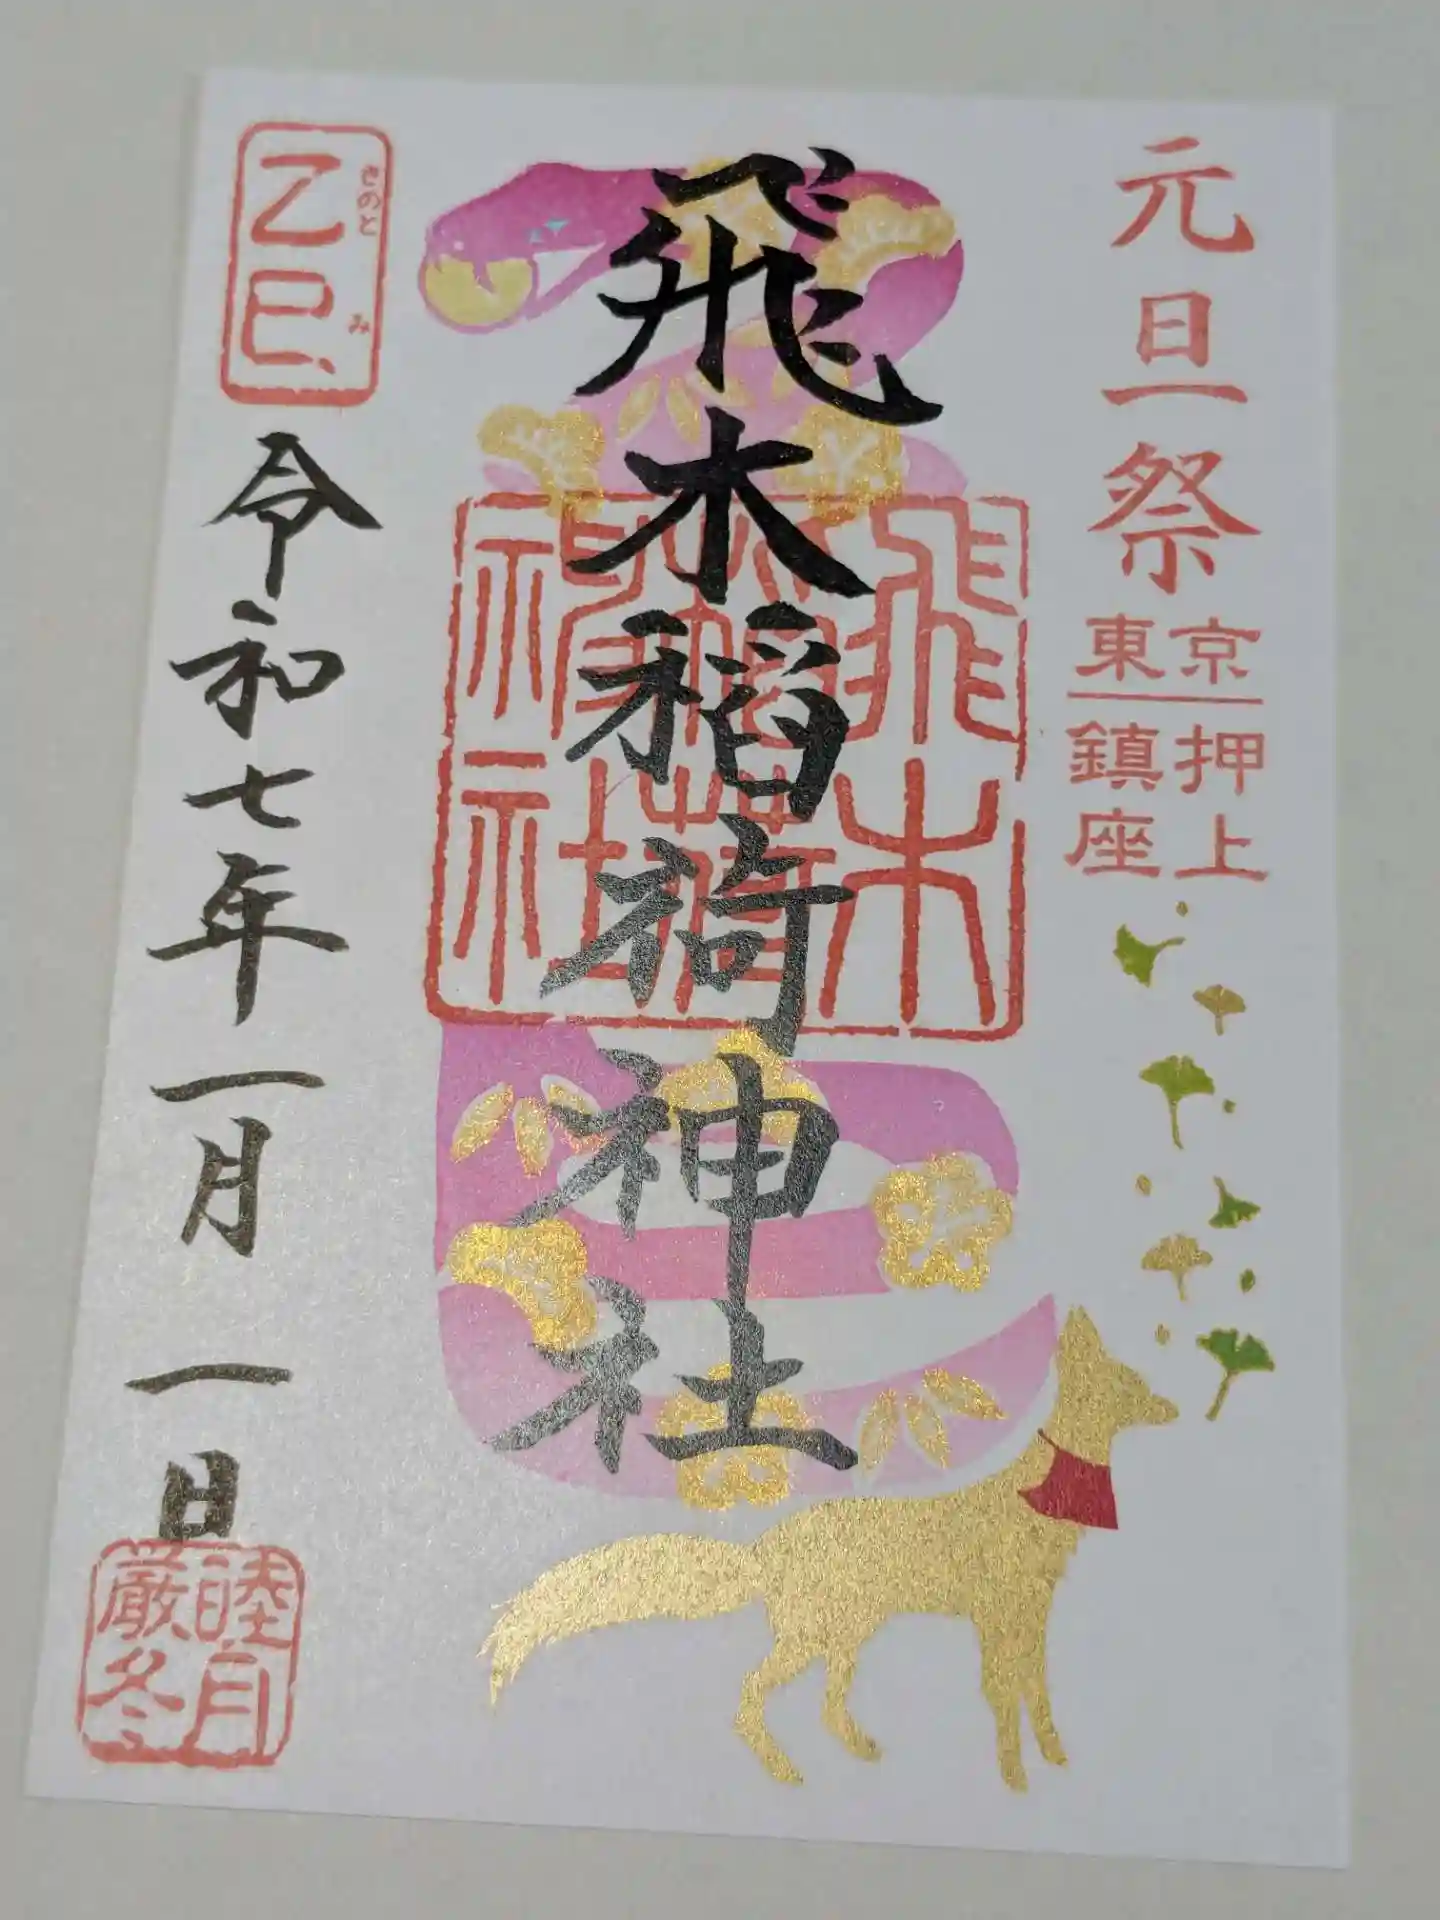 元旦祭
京押上
東鎮座
飛木稲荷神社
飛木
稲荷
神社
乙巳
きのと
み
令和七年一月一日
睦月
厳冬